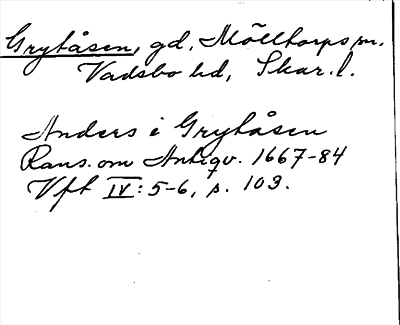 Grytåsen, gd, Mölltorps sn.
Vadsbo hd, Skar. l.
Anders i Grytåsen
Rans. om Antiqv. 1667-84
Vft IV: 5-6, s. 103.